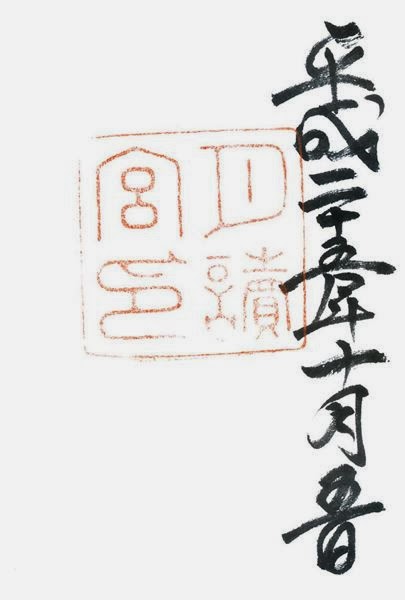 平成二十五年十月五日
月讀
宮印